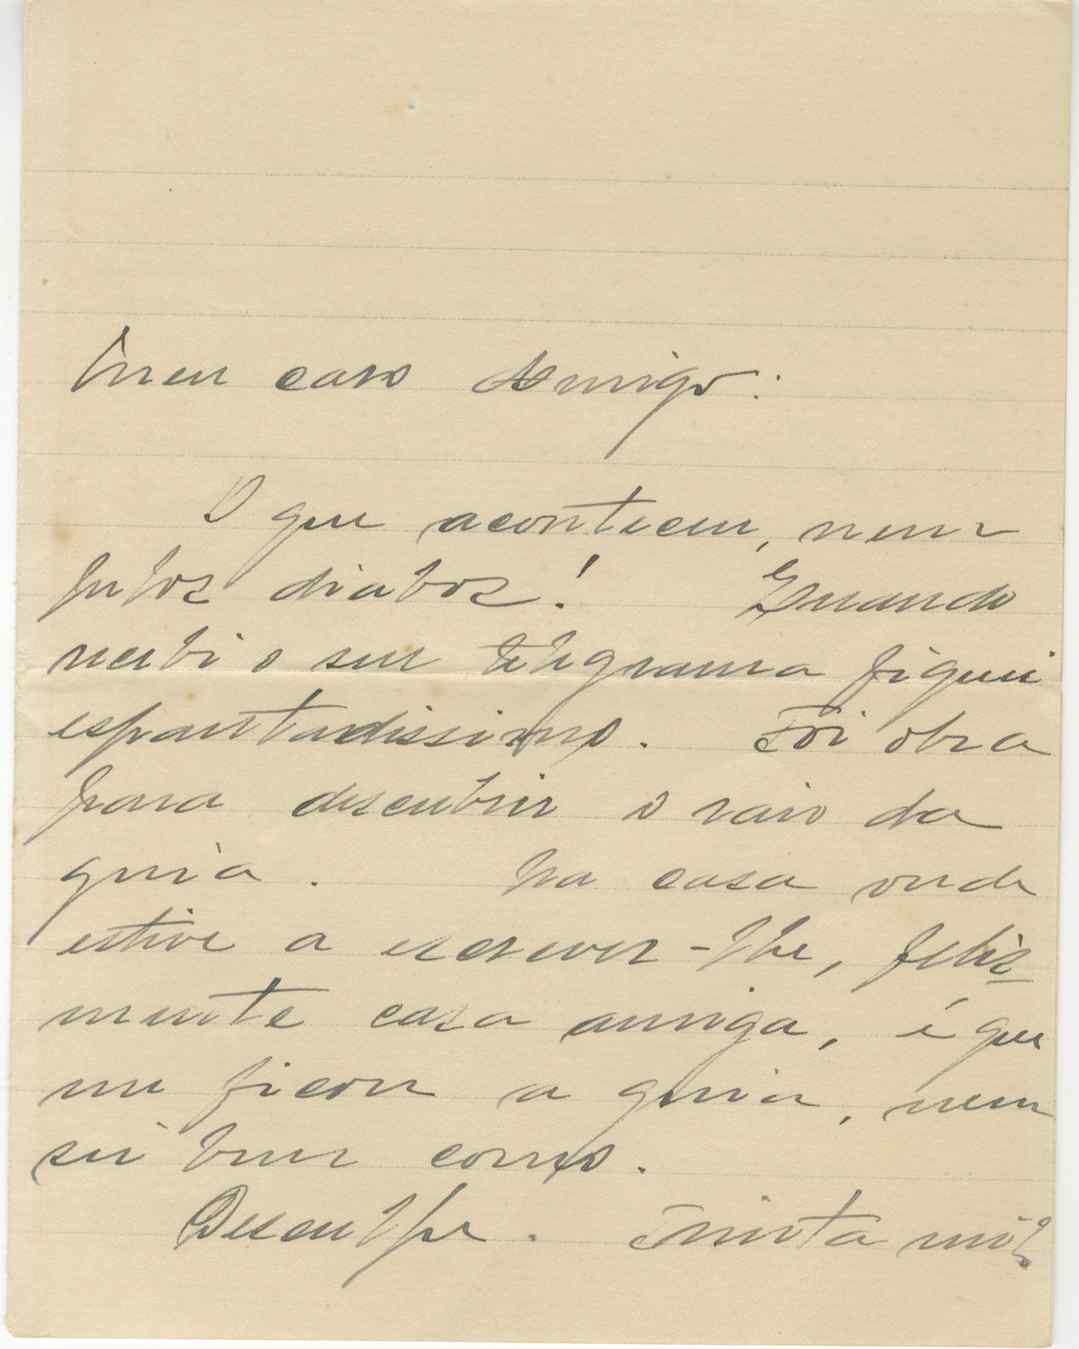 Meu caro Amigo:
O que aconteceu, nem
pelos diabos! Quando
recebi o seu telegrama fiquei
espantadissimo. Foi obra
para descubrir o raio da
guia. Na casa onde
estive a escrever-lhe, feliz-
mente casa amiga, é que
me ficou a guia, nem
sei bem como.
Desculpe. Trinta mil